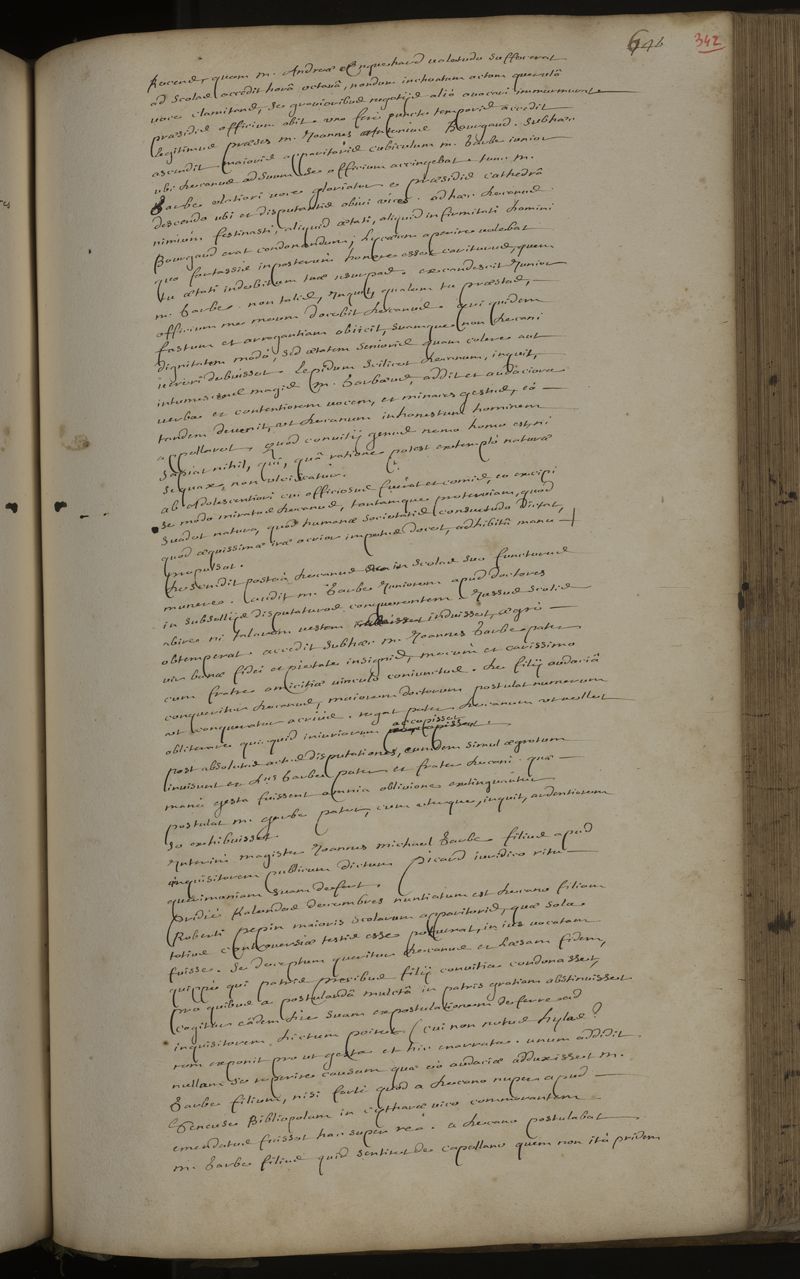 646 342
quem m. Andreæ valetudo
ad scolas accedit horâ octavâ, nondum inchoatam actam
voce clamitans, se gravioribus negotiis aliò avocari immurmurat
præsidis officium abit. uno ferè puncto temporis accedit
legitimus præses m. Joannes Antonius Bourgaud. subhæc
ascendit maioris apparitoris cubiculum m. Barbe iunior
ubi decanus ad suum se officium accingebat. tunc m.
Barbe elatiori voce gloriatur e præsidis cathedrâ
descendo ubi et disputantis obivi vices. ad hæc decanus
nimium festinasti, aliquid ætati, aliquid infirmitati domini
Bourgaud erat condonandum; aperire volebat
quo fortassis inposterum honore esset cariturus, quem
tu ætati indebitum tuæ usurpas. excandescit Junior
m. Barbe. non talis, inquit, qualem tu præstas,
officium me meum docebit decanus. qui quidem
fastum et arrogantiam obiicit, suamque non decani
dignitatem modò, sed ætatem senioris quam colere aut
revereri debuisset. Lepidum scilicet decanum, inquit,
intumescens magis m. Barbæus, addit et audaciora
verba et contentiorem vocem, et minaces gestus, eò
tandem devenit, ut decanum inhonestum hominem
appellaret, quod convitij genus nemo homo est, ni
sapiat nihil, qui, quâ ratione potest extemplò naturæ
sequax, non ulciscatur.
ab adolescentiori cui officiosus fuerat et comis, eo excipi
se modo miratus decanus, tantamque proterviam, quod
suadet natura, quod humanæ societatis consuetudo dictat,
quod æquissimæ iræ acrior impetus docet, adhibitâ manu
propulsat.
Descendit posteà decanus in scolas suo functurus
munere. audit m. Barbe Juniorem apud doctores
in subselliis disputaturos conquerentem. Jussus scolis
abire ni talarem vestem induisset, ægrè
obtemperat. accedit subhæc m. Joannes Barbe pater
vir bonæ fidei et pietate insignis, mecum et carissimo
cum fratre amicitiæ vinculo coniunctus. de filij audaciâ
conqueritur decanus, maiorem doctorum postulat numerum
ut conqueratur acriùs. rogat pater decanum ut vellet
obliterare quicquid iniuriarum accepisset
post absolutas actus disputationes, eundem simul ægrotum
invisunt et diis Barbe pater et frater decani. quæ
manè gesta fuissent omnia oblivione extinguantur
postulat m. Barbe pater, eum utrique, inquit, ardentiorem
se exhibuisset.
Interim magister Joannes michael Barbe filius apud
inquisitorem publicum dictum Picard iuridico ritu
querimoniam suam defert.
Pridiè Kalendas decembres nuntiatum est decano filiam
Roberti pepin maioris scolarum apparitoris, quæ sola
totius controversiæ testis esse potuerat, in ius vocatam
fuisse. se deceptum queritur decanus et læsam fidem,
quippè qui patris precibus filij convitia condonasset,
pro quibus a postulandâ mulctâ in patris gratiam abstinuisset
cogitur eâdem die suam expostulationem deferre ad
inquisitorem dictum poiret (cui non notus hylas?
rem exponit prout gesta et hic enarrata. unum addidit
nullam se reperire causam quæ eò audaciæ adduxisset m.
Barbe filium, nisi fortè quod a decano nuper apud
Bibliopolam in cytharæ vico commorantem
emendatus fuisset hac super re. a decano postulabat
m. Barbe filius quid sentiret de capellano quem non ità pridem